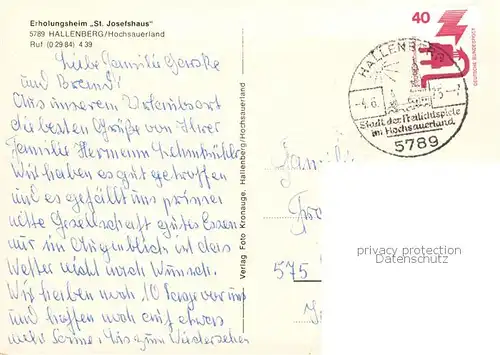 Erholungsheim „St. Josefshaus"
5789 HALLENBERG/Hochsauerland
Ruf (0 29 84) 4 39
Liebe Familie
und
Aus unserem Urlaubsort
die besten Grüße von Ihrer
Familie Hermann
Wir haben es gut getroffen
und es gefällt uns prima
nette Gesellschaft gutes Essen
nur im Augenblick ist das
Wetter nicht nach Wunsch.
Wir haben noch 10 Tage vor uns
und hoffen noch auf etwas
mehr Sonne. Bis zum Wiedersehen
Verlag Foto Kronauge, Hallenberg/Hochsauerland
40
DEUTSCHE BUNDESPOST
HALLENBERG
-4.6.
75-
Stadt der Freilichtspiele
im Hochsauerland
5789
Familie
575
privacy protection
Datenschutz